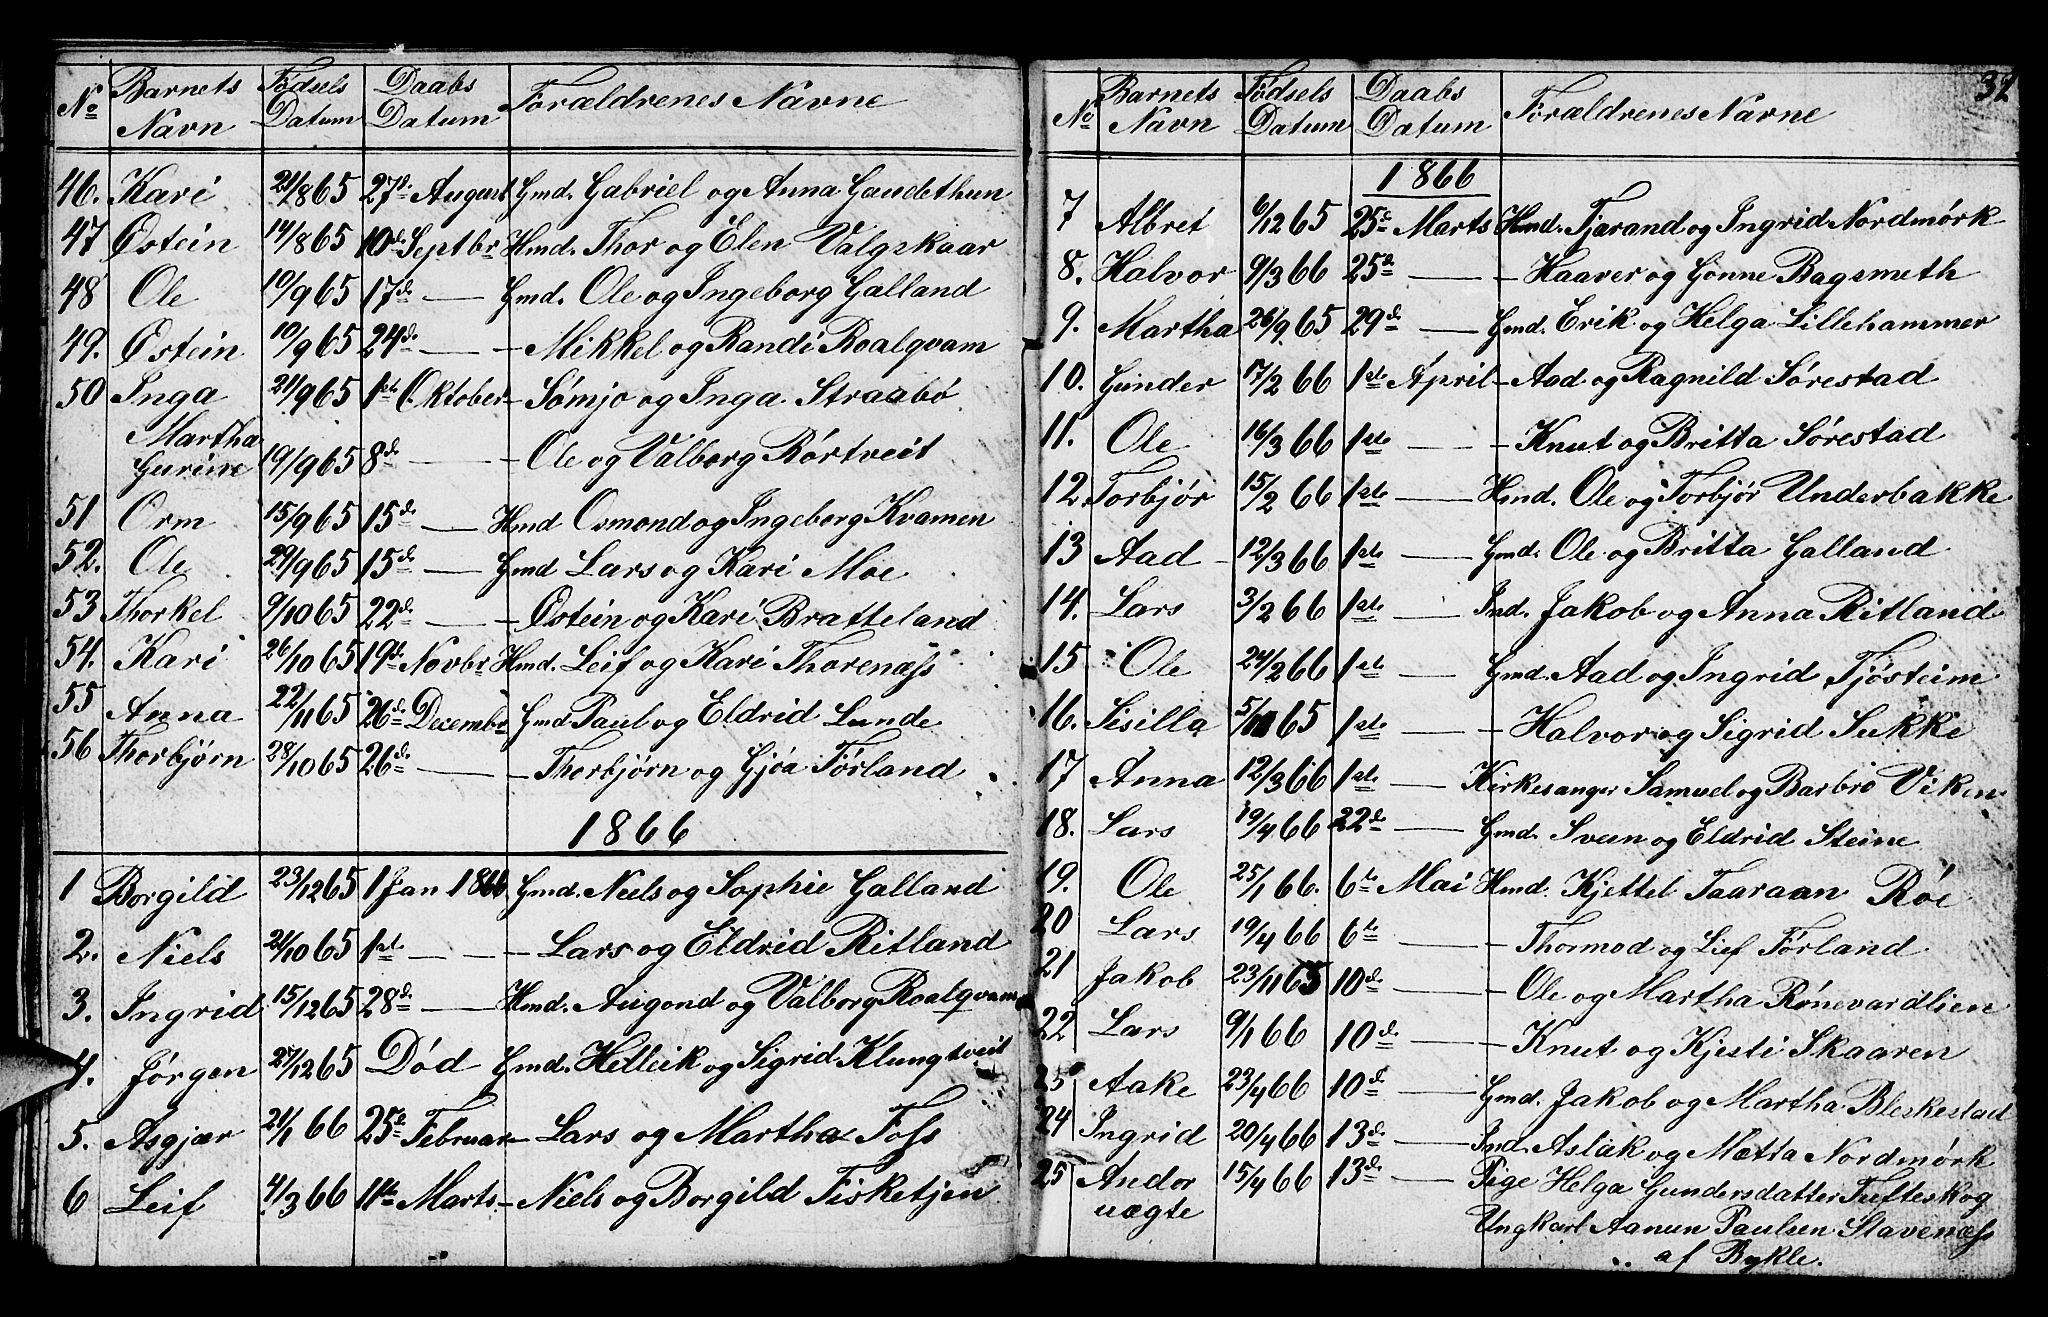 No Barnets Navn Fødsels Datum Daabs Datum Forældrenes Navne
46. Kari 21/8 65 27de August Gmd. Gabriel og Anna Gaudethun
47 Østein 14/8 65 10de Septbr Hmd. Thor og Elen Valgskaar
48 Ole 10/9 65 17de — Gmd. Ole og Ingeborg Galland
49. Østein 10/9 65 24de — - Mikkel og Randi Roalqvam
50 Inga 21/9 65 1ste Oktober - Sømjo og Inga Straabø
Martha
Gurine 19/9 65 8de — - Ole og Valborg Rørtveit
51 Orm 15/9 65 15de — Hmd Osmond og Ingeborg Kvamen
52. Ole 29/9 65 15de — Gmd Lars og Kari Moe
53 Thorkel 9/10 65 22de — - Østein og Kari Bratteland
54. Kari 26/10 65 19de Novbr Hmd. Leif og Kari Thorenæss
55 Anna 22/11 65 26de Decembr Gmd Paul og Eldrid Lunde
56 Thorbjørn 28/10 65 26de — - Thorbjørn og Gjøa Førland
1866
1 Borgild 23/12 65 1 Jan 1866 Gmd. Niels og Sophie Galland
2. Niels 21/10 65 1ste — - Lars og Eldrid Ritland
3. Ingrid 15/12 65 28de — Hmd. Augond og Valborg Roalqvam
4. Jørgen 27/12 65 Død Gmd. Helleik og Sigrid Klungtveit
5. Asgjær 21/1 66 25de Februar - Lars og Martha Foss
6 Leif 4/3 66 11te Marts - Niels og Borgild Fisketjen
32
No Barnets Navn Fødsels Datum Daabs Datum Forældrenes Navne
1866
7 Albret 6/12 65 25de Marts Hmd. Tjarand og Ingrid Nordmørk
8. Halvor 9/3 66 25de — - Haaver og Gonne Bagsmeth
9. Martha 26/9 65 29de — Gmd. Erik og Helga Lillehammer
10. Gunder 17/2 66 1ste April - Aad og Ragnild Sørestad
11. Ole 16/3 66 1ste — - Knut og Britta Sørestad
12 Torbjør 15/2 66 1ste — Hmd. Ole og Torbjør Underbakke
13 Aad 12/3 66 1ste — Gmd. Ole og Britta Galland
14. Lars 3/2 66 1ste — Ind. Jakob og Anna Ritland
15 Ole 24/2 66 1ste — Gmd. Aad og Ingrid Tjøsteim
16. Sisilla 65 1ste — - Halvor og Sigrid Sukke
17 Anna 12/3 66 1ste — Kirkesanger Samuel og Barbro Viken
18. Lars 19/4 66 22de — Gmd. Sveen og Eldrid Steine
19. Ole 25/1 66. 6te Mai Hmd. Kjettel Taaraan Røe
20 Lars 19/4 66 6te — - Thormod og Lief Førland
21 Jakob 23/11 65 10de — - Ole og Martha Rønevardlien
22 Lars 9/1 66 10de — - Knut og Kjesti Skaaren
25 Aake 23/4 66 10de — Gmd. Jakob og Martha Bleskestad
24 Ingrid 20/4 66 13de — Ind. Aslak og Mætta Nordmørk
25 Andor 15/4 66 13de — Pige Helga Gundersdatter Tufteskog
uægte Ungkarl Aanun Paulsen Stavenæss
af Bykle.